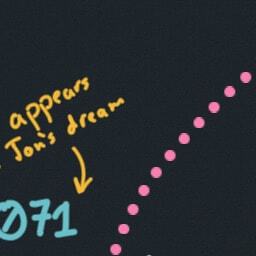 appears
Jon's dream
071